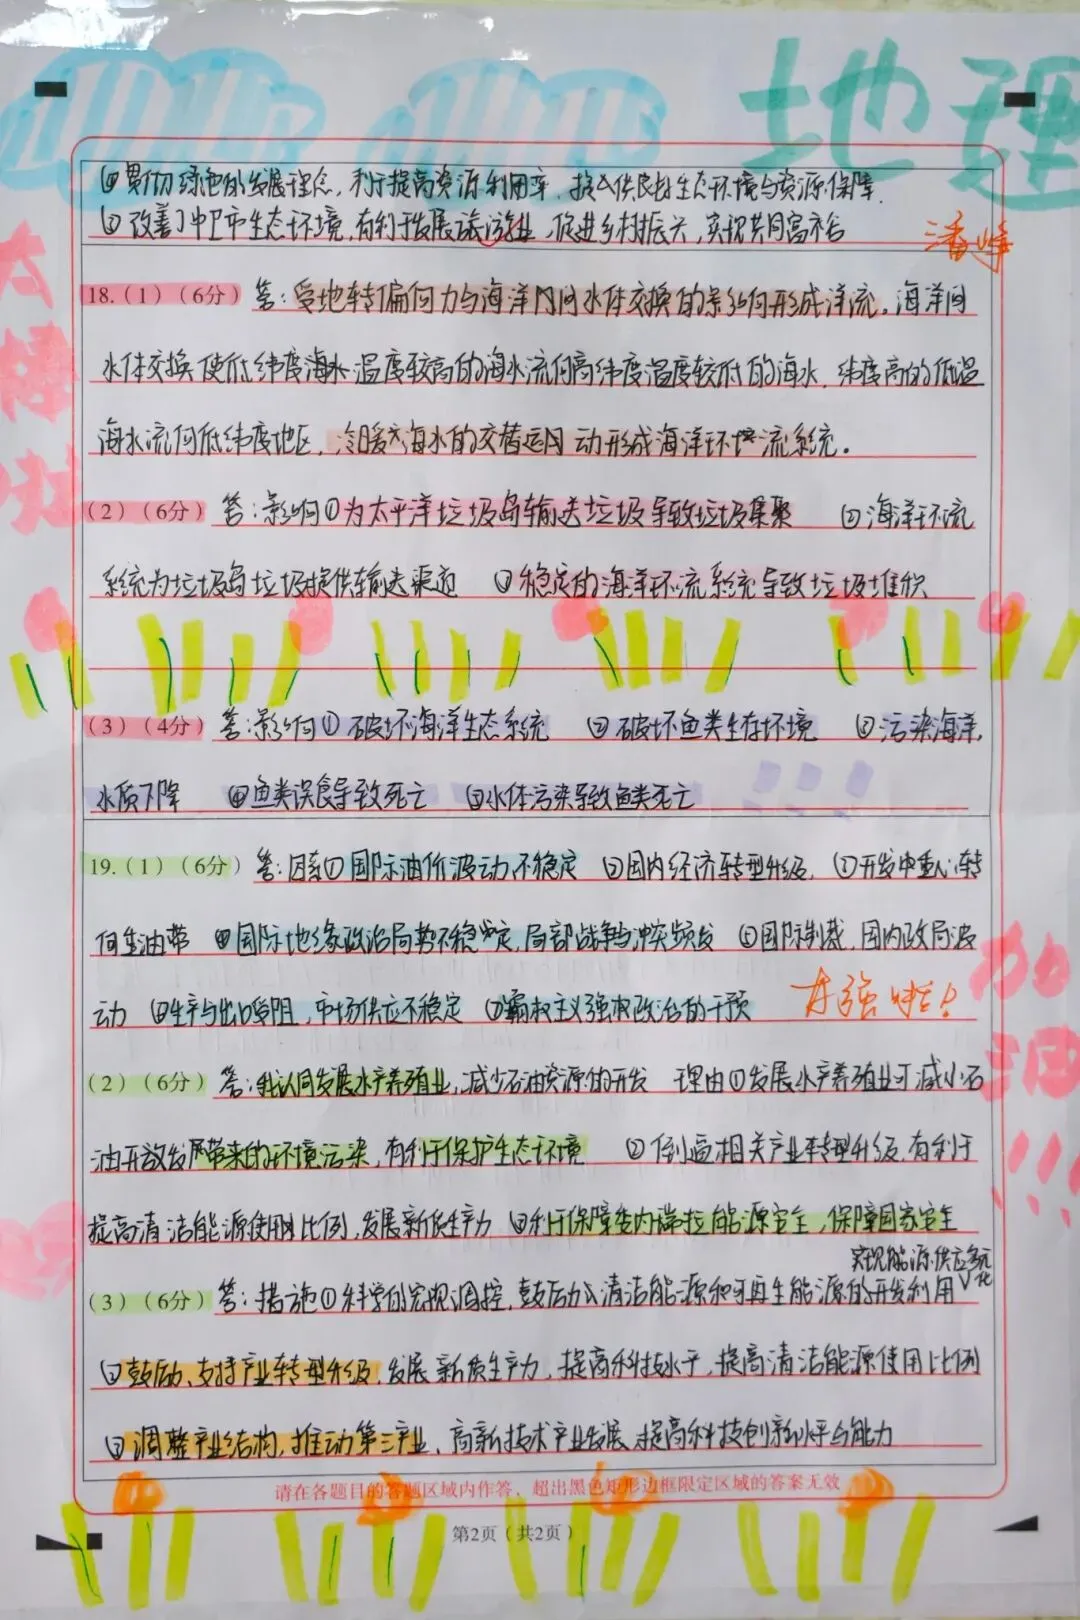 地理
④贯彻绿色的发展理念，利于提高资源利用率，
⑤改善了中卫市生态环境，有利于发展旅游业，促进乡村振兴，实现共同富裕
潘婷
18.（1）（6分）答：受地转偏向力与海洋内间水体交换的影响形成洋流。海洋间
水体交换使低纬度海水温度较高的海水流向高纬度温度较低的海水，纬度高的低温
海水流向低纬度地区，冷暖海水的交替运动形成海洋环流系统。
（2）（6分）答：影响①为太平洋垃圾岛输送垃圾导致垃圾集聚 ②海洋环流
系统为垃圾岛垃圾提供输送渠道 ③稳定的海洋环流系统导致垃圾堆积
（3）（4分）答：影响①破坏海洋生态系统 ②破坏鱼类生存环境 ③污染海洋，
水质下降 ④鱼类误食导致死亡 ⑤水体污染导致鱼类死亡
!!!
19.（1）（6分）答：因素①国际油价波动，不稳定 ②国内经济转型升级， ③开发中重心转
向重油带 ④国际地缘政治局势不稳定，局部战争与冲突频发 ⑤国际制裁，国内政局波
动 ⑥生产与出口受阻，市场供应不稳定 ⑦霸权主义强权政治的干预
太强啦！
（2）（6分）答：我认同发展水产养殖业，减少石油资源的开发 理由①发展水产养殖业可减小石
油开放发展带来的环境污染，有利于保护生态环境 ②倒逼相关产业转型升级，有利于
提高清洁能源使用比例，发展新质生产力 ③利于保障委内瑞拉能源安全，保障国家安全
实现能源供应多元化
（3）（6分）答：措施①科学的宏观调控，鼓励加大清洁能源和可再生能源的开发利用
②鼓励、支持产业转型升级，发展新质生产力，提高科技水平，提高清洁能源使用比例
③调整产业结构，推动第三产业、高新技术产业发展，提高科技创新水平与能力
请在各题目的答题区域内作答，超出黑色矩形边框限定区域的答案无效
第2页（共2页）
太棒啦
加油!!!